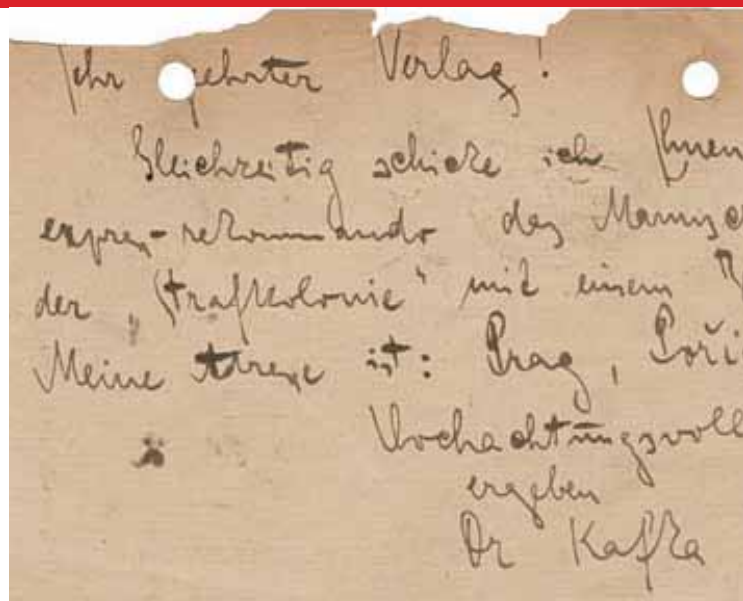 Sehr geehrter Verlag!
Gleichzeitig schicke ich Ihnen
express-rekommando das Manusc
der „Strafkolonie“ mit einem
Meine Adresse ist: Prag, Poři
Hochachtungsvoll
ergeben
Dr Kafka